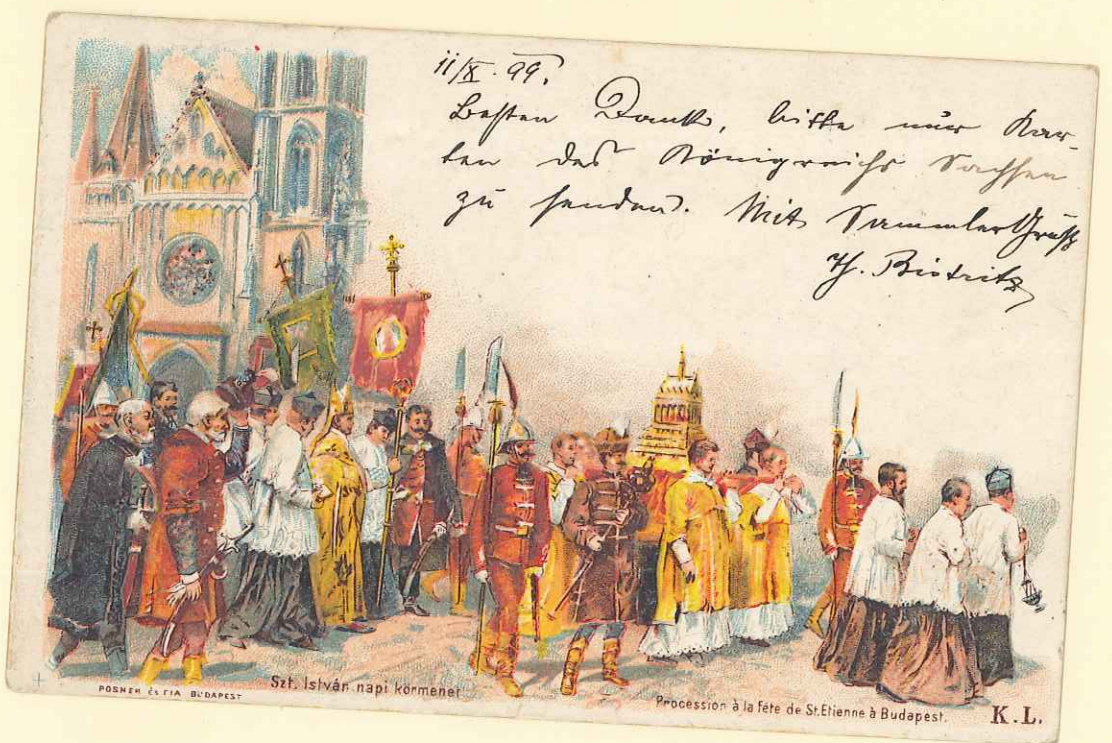 11/X. 99.
Besten Dank, bitte nur Kar-
ten des Königreichs Sachsen
zu senden. Mit Sammler Gruß
POSNER ÉS FIA BUDAPEST
Szt. István napi körmenet
Procession à la fête de St. Etienne à Budapest.
K.L.